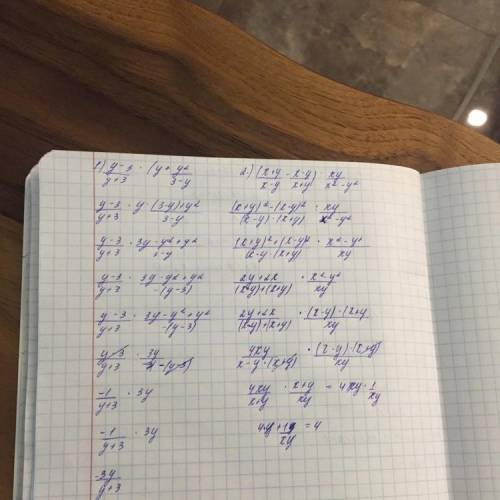 1) y-3/y+3 · (y + y²/3-y
y-3/y+3 · y · (3-y)+y²/3-y
y-3/y+3 · 3y-y²+y²/3-y
y-3/y+3 · 3y-y²+y²/-(y-3)
y-3/y+3 · 3y-y²+y²/-(y-3)
y-3/y+3 · 3y/-(y-3)
-1/y+3 · 3y
-1/y+3 · 3y
3y/y+3
2) (x+y/x-y - x-y/x+y) : xy/x²-y²
(x+y)²-(x-y)²/(x-y)·(x+y) : xy/x²-y²
(x+y)²+(x-y)²/(x-y)·(x+y) · x²-y²/xy
2y+2x/(x-y)+(x+y) · x²-y²/xy
2y+2x/(x-y)+(x+y) · (x-y)·(x+y)/xy
4xy/x-y·(x+y) · (x-y)·(x+y)/xy
4xy/x+y · x+y/xy = 4xy · 1/xy
= 4